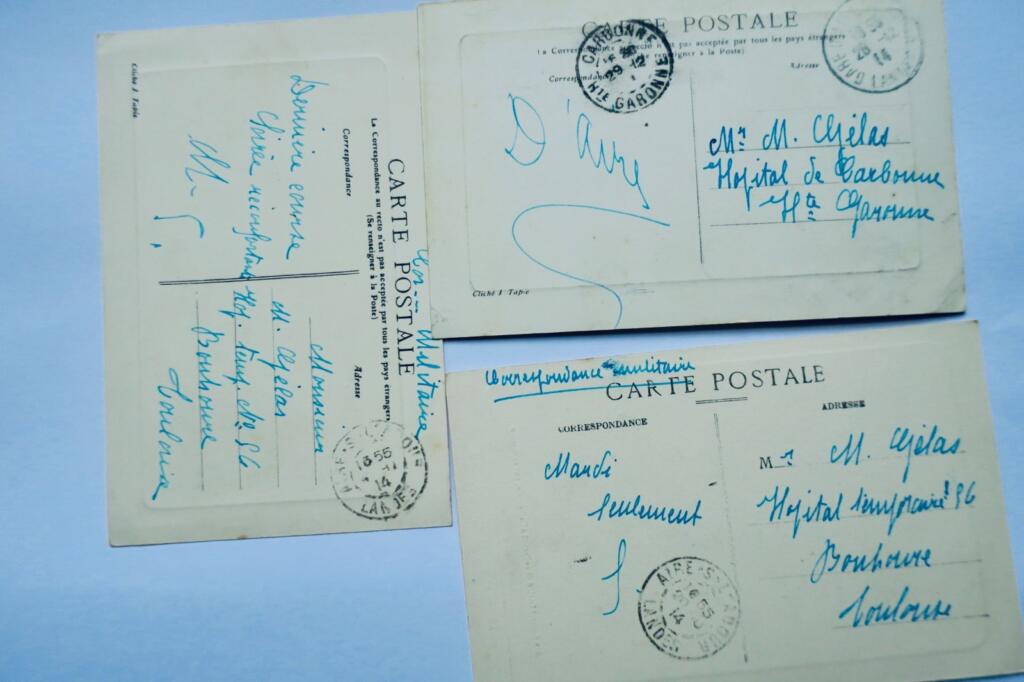 CARTE POSTALE
La Correspondance au recto n'est pas acceptée par tous les pays étrangers
(Se renseigner à la Poste)
Correspondance
Adresse
Cor-- Militaire
Dernière course
Soirée
Monsieur
M. Gélas
Hop. temp. No 56
Bonhoure
Toulouse
Cliché J Tapie
13 55
14
LANDES
CARTE POSTALE
La Corres
n'est pas acceptée par tous les pays étrangers
renseigner à la Poste)
Correspond
Adresse
CARBONNE
29 12
Hte GARONNE
14
D'Aire
Mr M. Gélas
Hopital de Carbonne
Hte Garonne
Cliché J Tapie
Correspondance militaire
CARTE POSTALE
CORRESPONDANCE
ADRESSE
Mardi
seulement
Mr M. Gélas
Hopital temporaire 56
Bonhoure
Toulouse
AIRE-S-L'ADOUR
16 55
14
LANDES